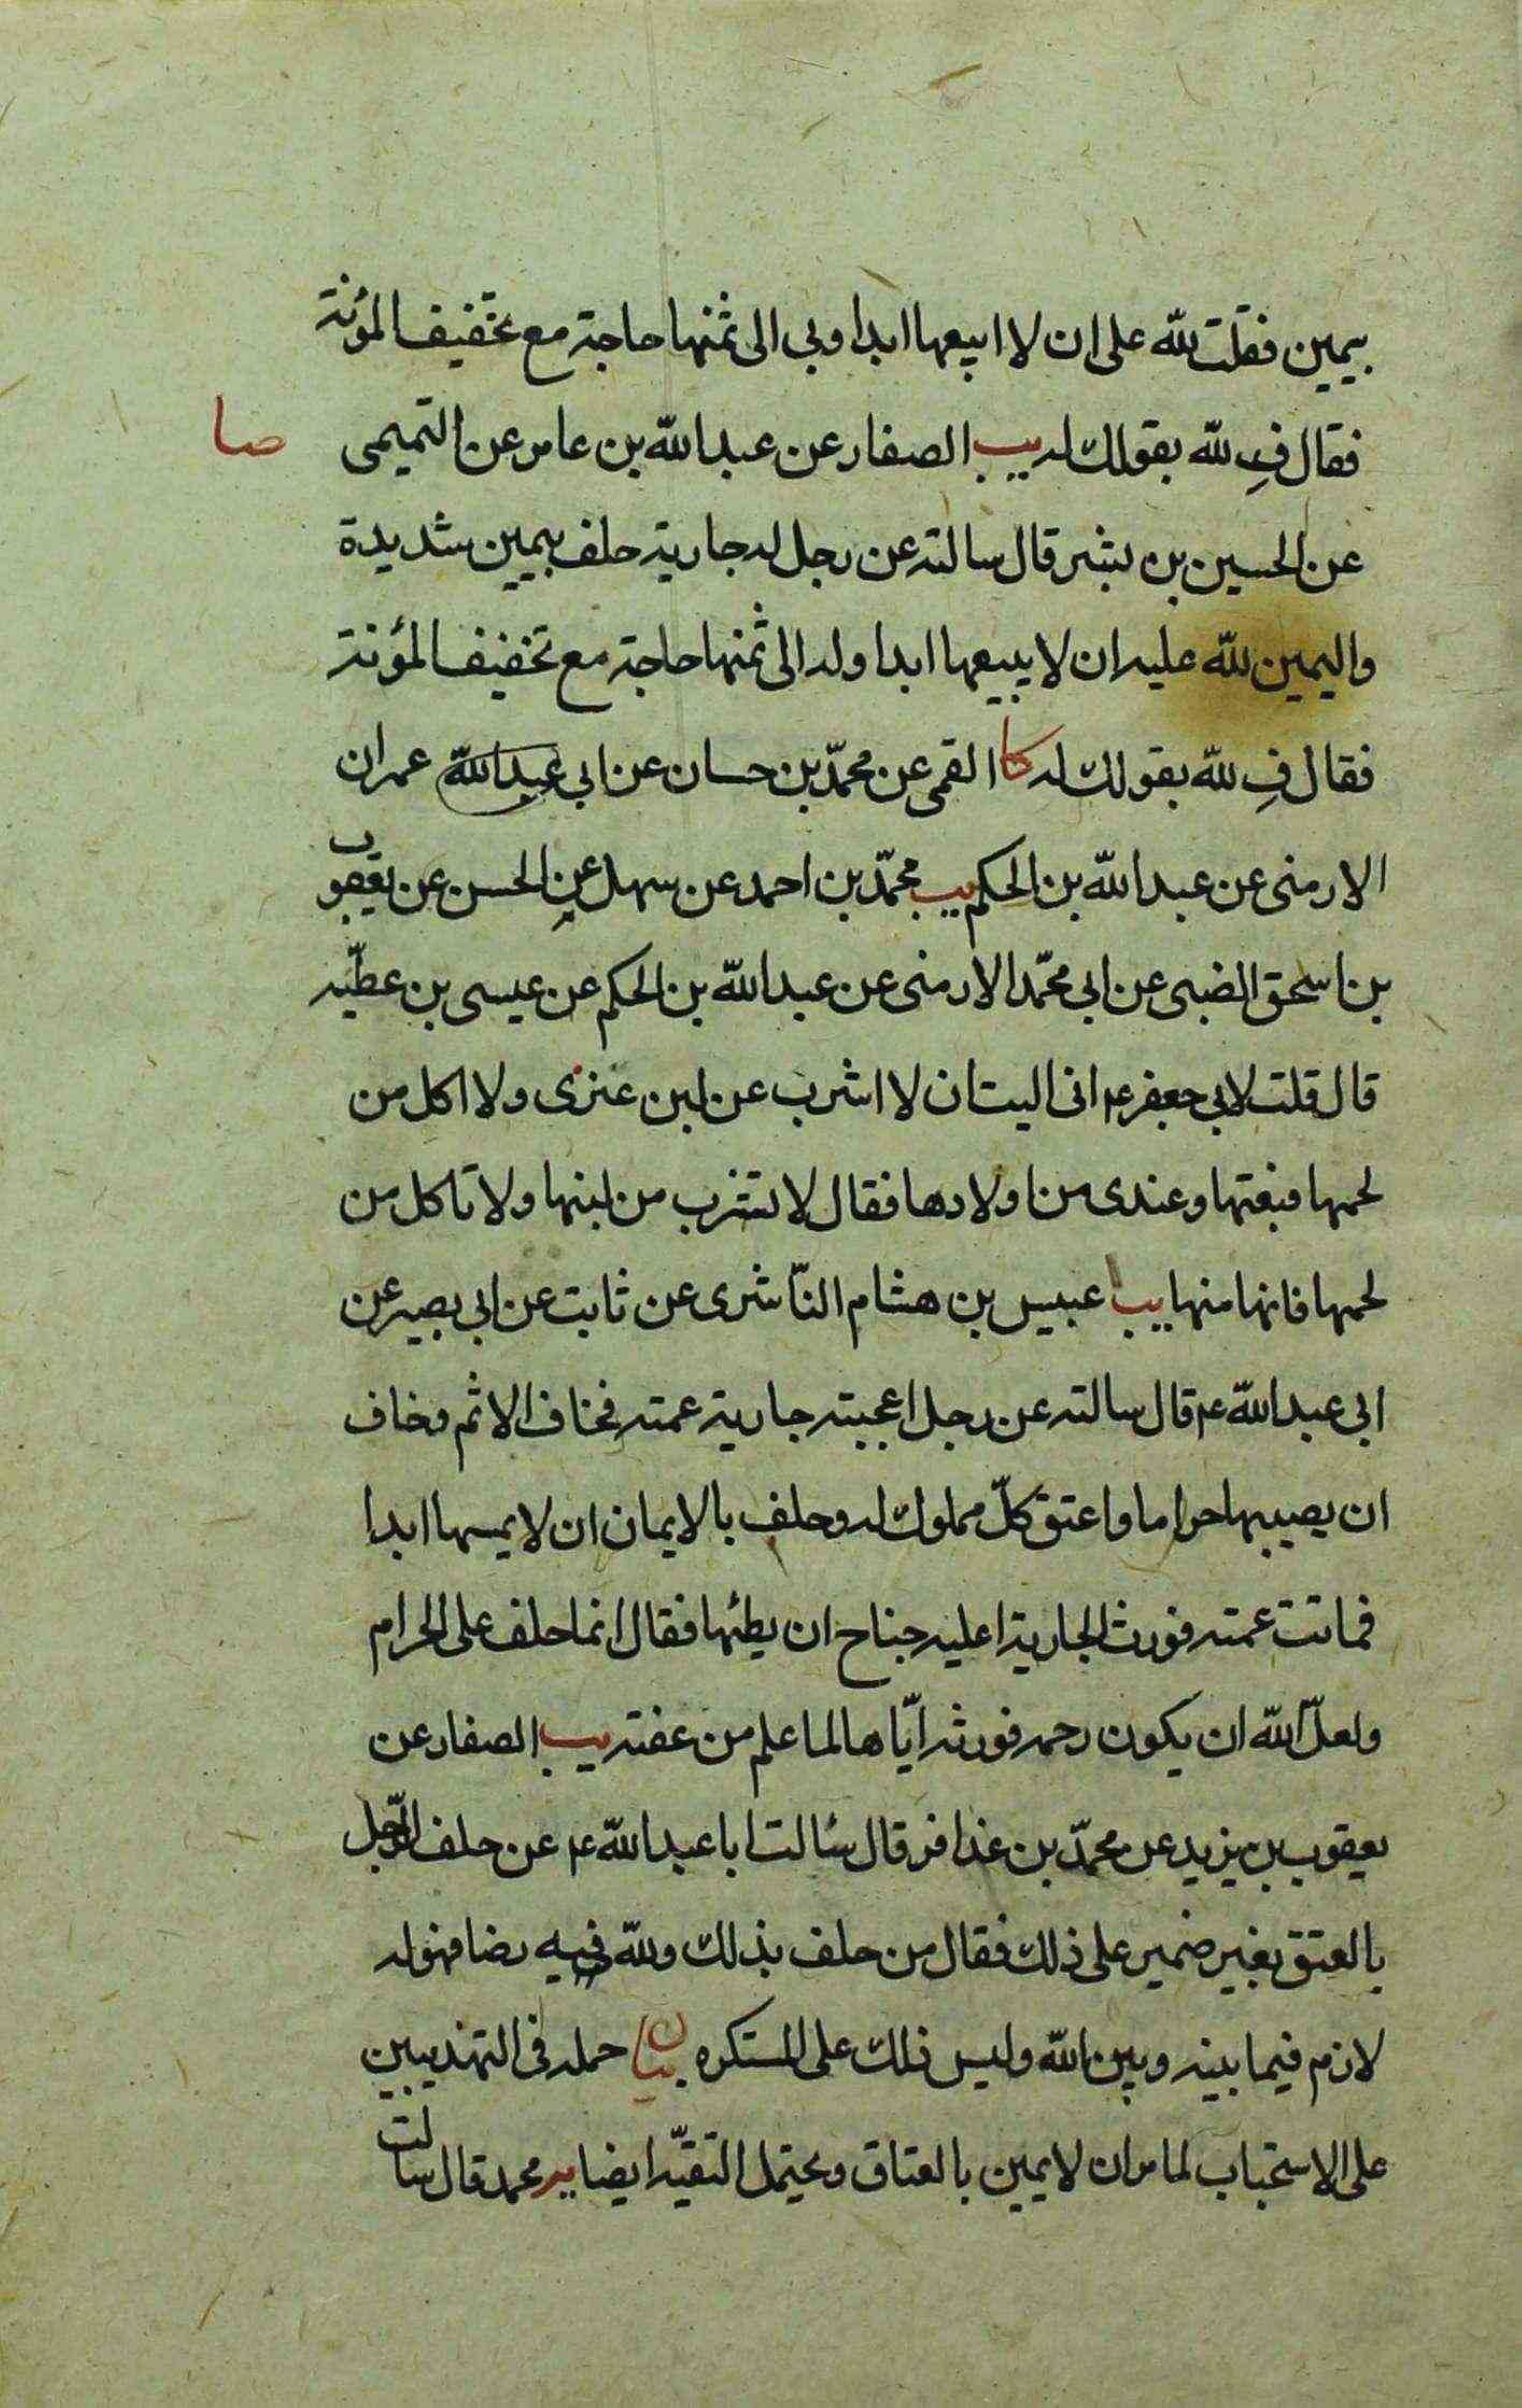 بيمين فقلت لله على ان لا ابيعها ابدا وبى الى ثمنها حاجة مع تخفيف المؤنة
فقال فِ لله بقولك له يب الصفار عن عبد الله بن عامر عن التميمى صا
عن الحسين بن بشر قال سالته عن رجل له جارية حلف بيمين شديدة
واليمين لله عليه ان لا يبيعها ابدا وله الى ثمنها حاجة مع تخفيف المؤنة
فقال فِ لله بقولك له كا القمى عن محمّد بن حسان عن ابى عبد الله عمران
الارمنى عن عبد الله بن الحكم يب محمّد بن احمد عن سهل عن الحسن عن يعقوب
بن اسحق الضبى عن ابى محمّد الارمنى عن عبد الله بن الحكم عن عيسى بن عطيّه
قال قلت لابى جعفر ع انى اليت ان لا اشرب عن لبن عنزى ولا اكل من
لحمها فبعتها وعندى من اولادها فقال لا تشرب من لبنها ولا تاكل من
لحمها فانها منها يب عبيس بن هشام النّاشرى عن ثابت عن ابى بصير عن
ابى عبد الله ع قال سالته عن رجل اعجبته جارية عمته فخاف الاثم وخاف
ان يصيبها حراما واعتق كلّ مملوك له وحلف بالايمان ان لا يمسها ابدا
فماتت عمته فورث الجارية اعليه جناح ان يطئها فقال انما حلف على الحرام
ولعلّ الله ان يكون رحمه فورثه ايّاها لما علم من عفته يب الصفار عن
يعقوب بن يزيد عن محمّد بن عذافر قال سئالت ابا عبد الله ع عن حلف الرّجل
بالعتق بغير ضمير على ذلك فقال من حلف بذلك ولله فيه رضا فهو له
لازم فيما بينه وبين الله وليس ذلك على المستكره بيان حمله فى التهذيبين
على الاستحباب لما مر ان لا يمين بالعتاق ويحتمل التقيّه ايضا يه محمد قال سالت